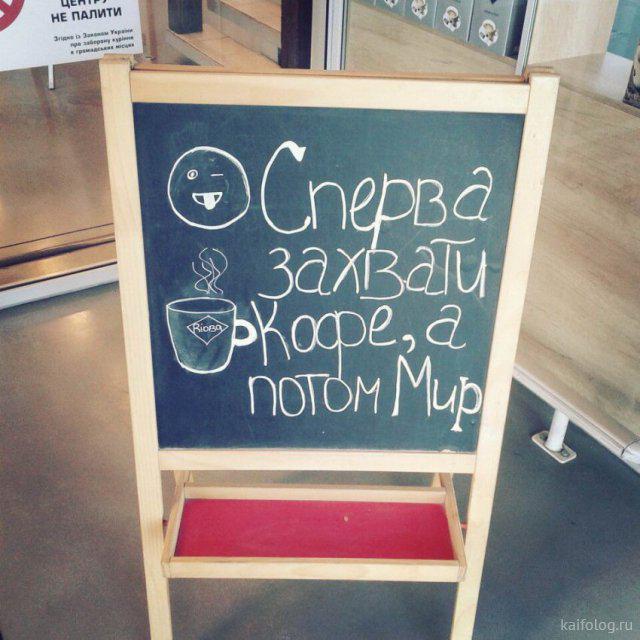 ЦЕНТРУ
НЕ ПАЛИТИ
Згідно із Законом України
про заборону куріння
в громадських місцях
Сперва
захвати
кофе, а
потом Мир
Rioba
kaifolog.ru